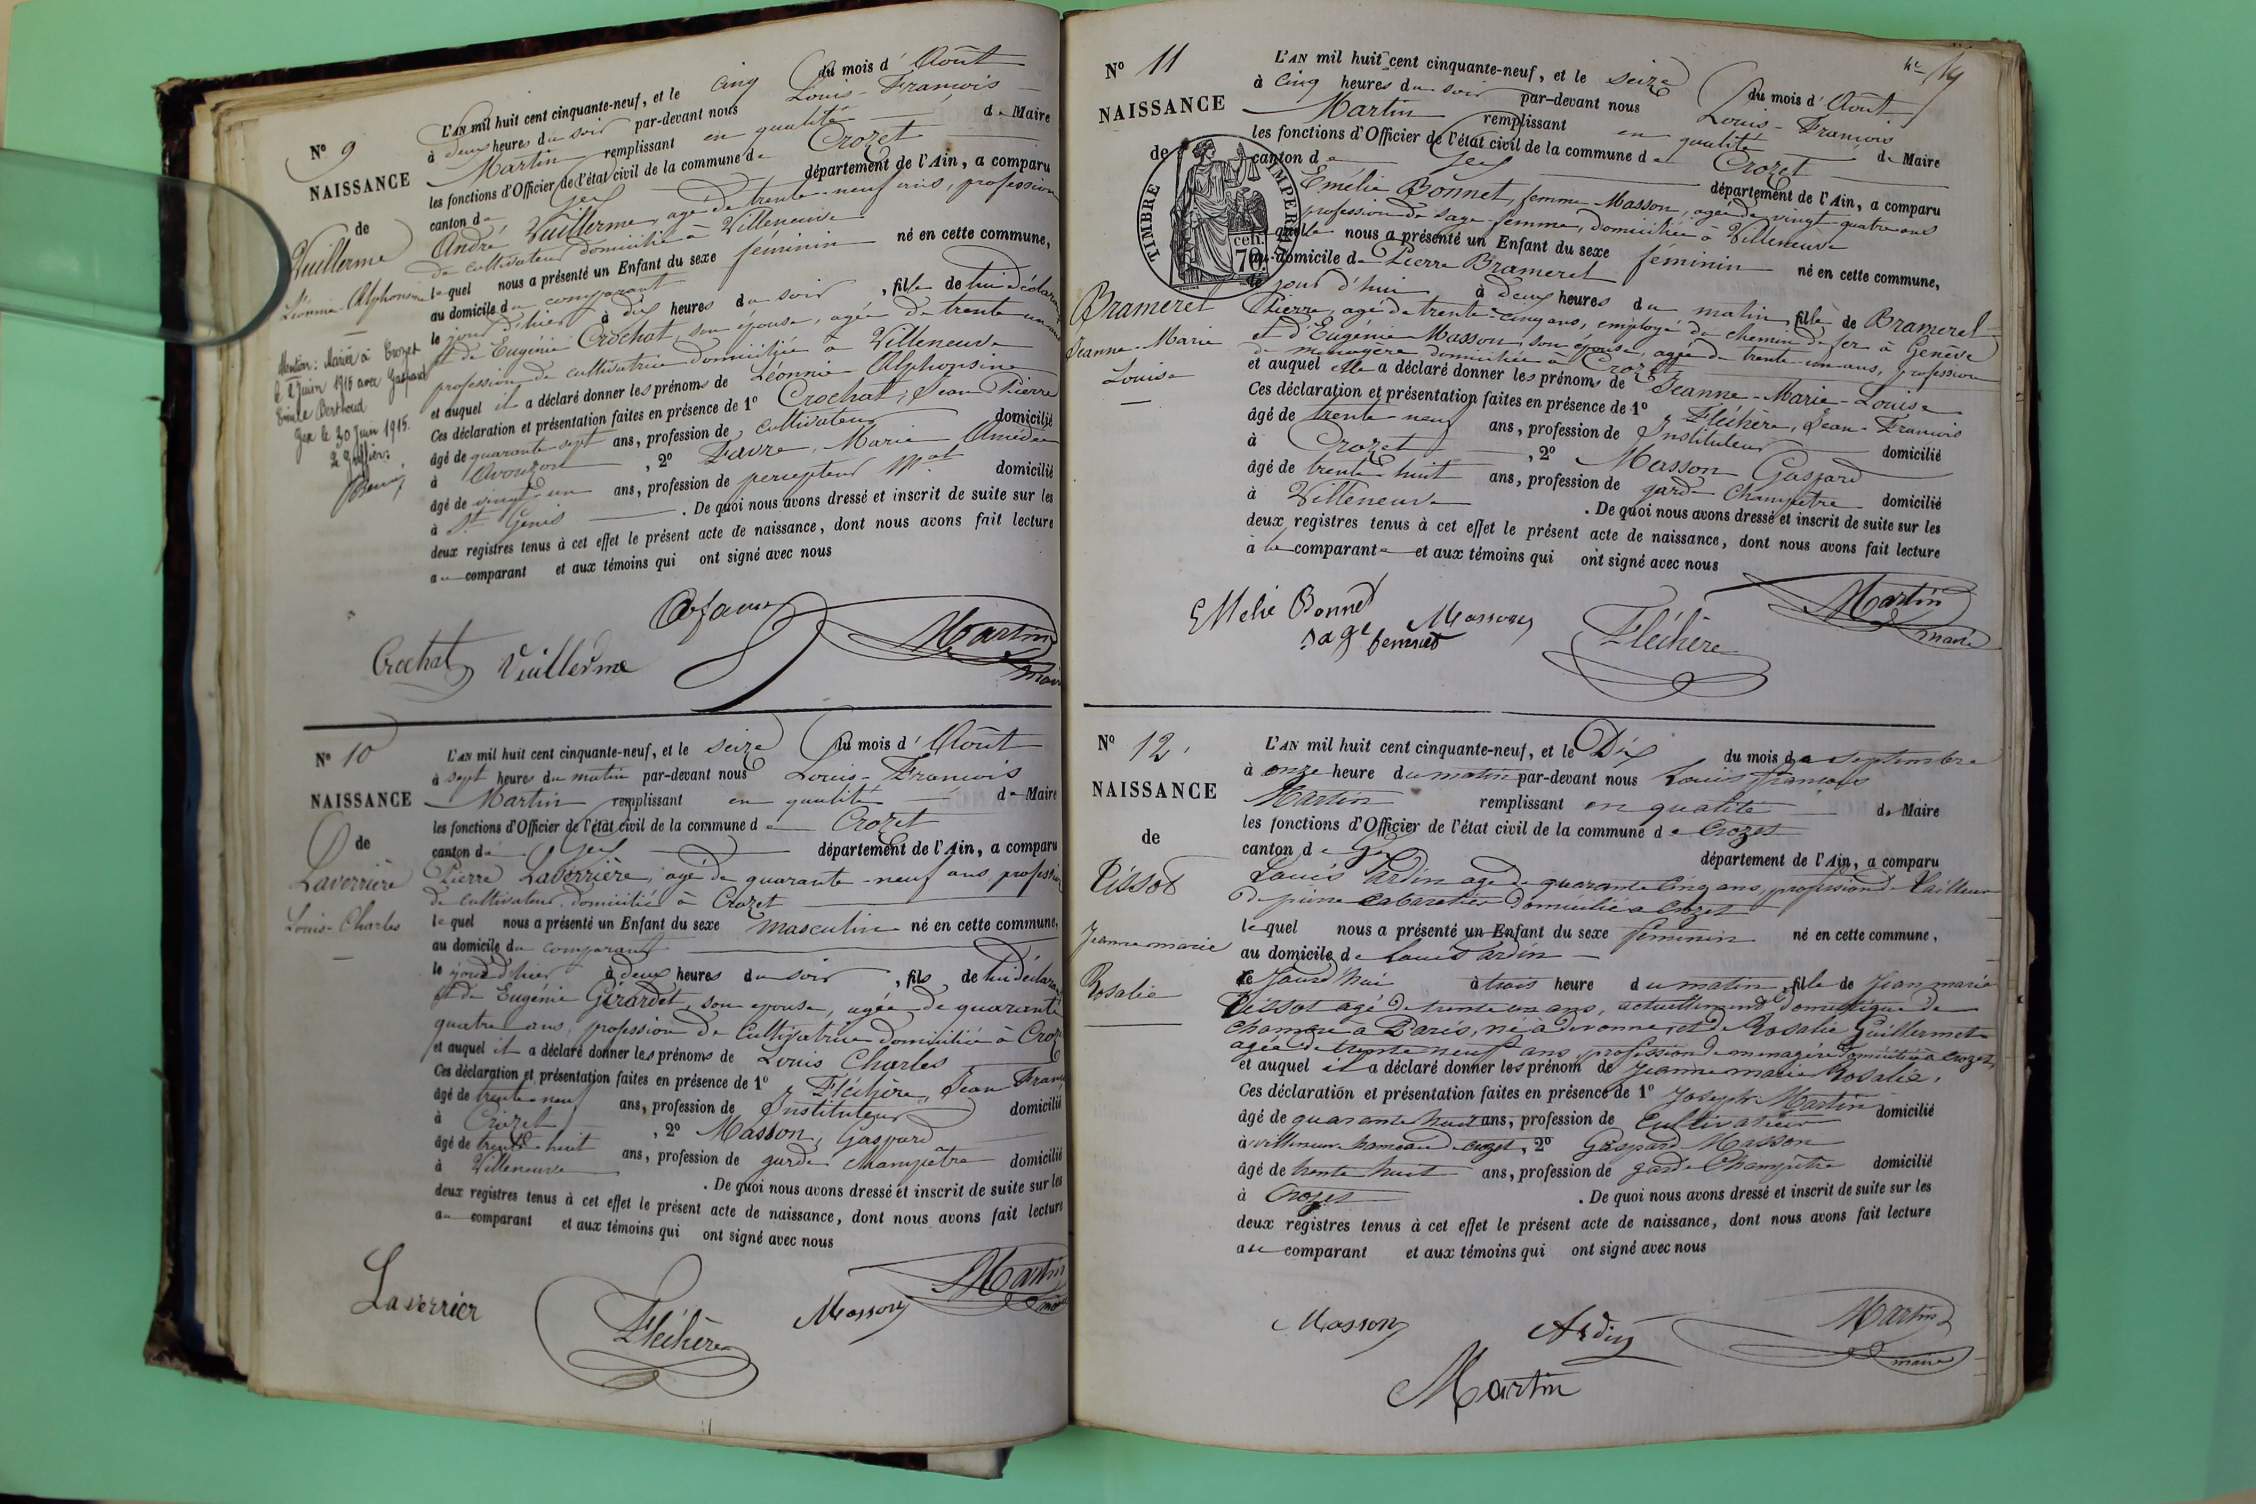 N° 9
NAISSANCE
de
Vuillerme
Léonnie Alphonsine
Mention : Mariée à Crozet
le 2 Juin 1915 avec Gaspard
Emile Berthoud
Gex le 30 Juin 1915.
Le Greffier:
L'AN mil huit cent cinquante-neuf, et le cinq du mois d'Août
à deux heures du soir par-devant nous Louis-François
Martin remplissant en qualité de Maire
les fonctions d'Officier de l'état civil de la commune de Crozet
canton de Gex département de l'Ain, a comparu
André Vuillerme, agé de trente-neuf ans, profession
de cultivateur domicilié à Villeneuve
lequel nous a présenté un Enfant du sexe féminin né en cette commune,
au domicile du comparant
le jour d'hier à dix heures du soir, fille de lui déclarant
et de Eugénie Crochat, son épouse, agée de trente un ans
profession de cultivatrice domiciliée à Villeneuve
et auquel il a déclaré donner les prénoms de Léonnie Alphonsine
Ces déclaration et présentation faites en présence de 1° Crochat, Jean Pierre
âgé de quarante-sept ans, profession de cultivateur domicilié
à Avouzon, 2° Favre, Marie Amédée
âgé de vingt-un ans, profession de percepteur domicilié
à St Genis. De quoi nous avons dressé et inscrit de suite sur les
deux registres tenus à cet effet le présent acte de naissance, dont nous avons fait lecture
au comparant et aux témoins qui ont signé avec nous
Crochat Vuillerme
Martin
maire
N° 10
NAISSANCE
de
Laverrière
Louis-Charles
L'AN mil huit cent cinquante-neuf, et le seize du mois d'Août
à sept heures du matin par-devant nous Louis-François
Martin remplissant en qualité de Maire
les fonctions d'Officier de l'état civil de la commune de Crozet
canton de Gex département de l'Ain, a comparu
Pierre Laverrière, agé de quarante-neuf ans, profession
de cultivateur domicilié à Crozet
lequel nous a présenté un Enfant du sexe masculin né en cette commune,
au domicile du comparant
le jour d'hier à deux heures du soir, fils de lui déclarant
et de Eugénie Girardet, son epouse, agée de quarante
quatre ans, profession de Cultivatrice domiciliée à Crozet
et auquel il a déclaré donner les prénoms de Louis Charles
Ces déclaration et présentation faites en présence de 1° Fléchère, Jean François
âgé de trente-neuf ans, profession de Instituteur domicilié
à Crozet, 2° Masson, Gaspard
âgé de trente-huit ans, profession de garde champêtre domicilié
à Villeneuve. De quoi nous avons dressé et inscrit de suite sur les
deux registres tenus à cet effet le présent acte de naissance, dont nous avons fait lecture
au comparant et aux témoins qui ont signé avec nous
Laverrier
Fléchère
Masson
Martin
maire
19
N° 11
NAISSANCE
de
TIMBRE IMPERIAL
70 cen.
Brameret
Jeanne-Marie
Louise
L'AN mil huit cent cinquante-neuf, et le seize du mois d'Août
à cinq heures du soir par-devant nous Louis-François
Martin remplissant en qualité de Maire
les fonctions d'Officier de l'état civil de la commune de Crozet
canton de Gex département de l'Ain, a comparu
Emélie Bonnet, femme Masson, agée de vingt-quatre ans
profession de sage-femme, domiciliée à Villeneuve
laquelle nous a présenté un Enfant du sexe féminin né en cette commune,
au domicile de Pierre Brameret
le jour d'hui à deux heures du matin, fille de Brameret
Pierre, agé de trente-cinq ans, employé de chemin de fer à Genève
et d'Eugénie Masson, son épouse, agée de trente-un ans, profession
de ménagère domiciliée à Crozet
et auquel elle a déclaré donner les prénoms de Jeanne-Marie-Louise
Ces déclaration et présentation faites en présence de 1° Fléchère, Jean-François
âgé de trente-neuf ans, profession de Instituteur domicilié
à Crozet, 2° Masson Gaspard
âgé de trente huit ans, profession de garde Champêtre domicilié
à Villeneuve. De quoi nous avons dressé et inscrit de suite sur les
deux registres tenus à cet effet le présent acte de naissance, dont nous avons fait lecture
à la comparante et aux témoins qui ont signé avec nous
Emelie Bonnet
sage femme
Masson
Fléchère
Martin
maire
N° 12
NAISSANCE
de
Pissot
Jeanne marie
Rosalie
L'AN mil huit cent cinquante-neuf, et le Dix du mois de septembre
à onze heure du matin par-devant nous Louis françois
Martin remplissant en qualité de Maire
les fonctions d'Officier de l'état civil de la commune de Crozet
canton de Gex département de l'Ain, a comparu
Louis Ardin agé de quarante cinq ans, profession de tailleur
de pierre cabaretier domicilié a Crozet
lequel nous a présenté un Enfant du sexe féminin né en cette commune,
au domicile de Louis Ardin
le Jourd'hui à trois heure du matin, fille de Jean marie
Pissot agé de trente un ans, actuellement domestique de
chambre a Paris, né à divonne, et de Rosalie Guillermet
agée de trente neuf ans, profession de menagère domiciliée a Crozet,
et auquel il a déclaré donner les prénom de Jeanne marie Rosalie.
Ces déclaration et présentation faites en présence de 1° Joseph Martin
âgé de quarante huit ans, profession de Cultivateur domicilié
à villeneuve hameau de Crozet, 2° Gaspard Masson
âgé de trente huit ans, profession de garde Champêtre domicilié
à Crozet. De quoi nous avons dressé et inscrit de suite sur les
deux registres tenus à cet effet le présent acte de naissance, dont nous avons fait lecture
au comparant et aux témoins qui ont signé avec nous
Masson Ardin Martin
maire
Martin